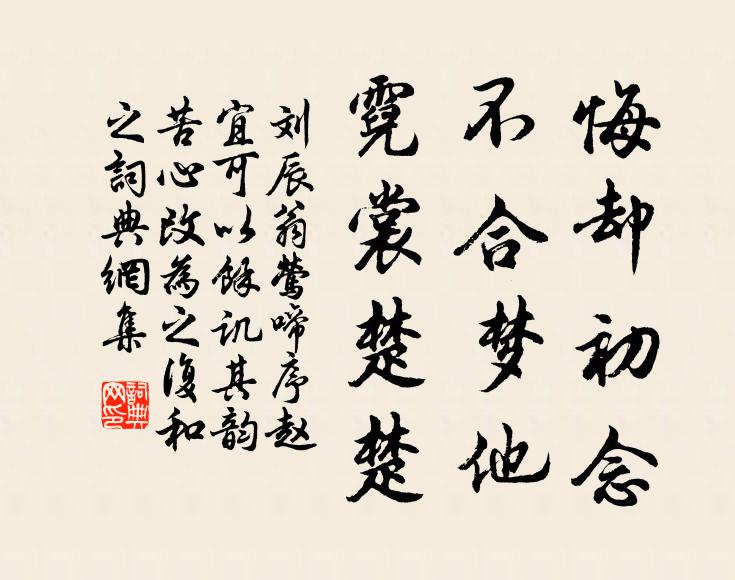 悔却初念
不合梦他
霓裳楚楚
刘辰翁莺啼序赵
宜可以馀讥其韵
苦心改为之复和
之词典網集
詞典網印